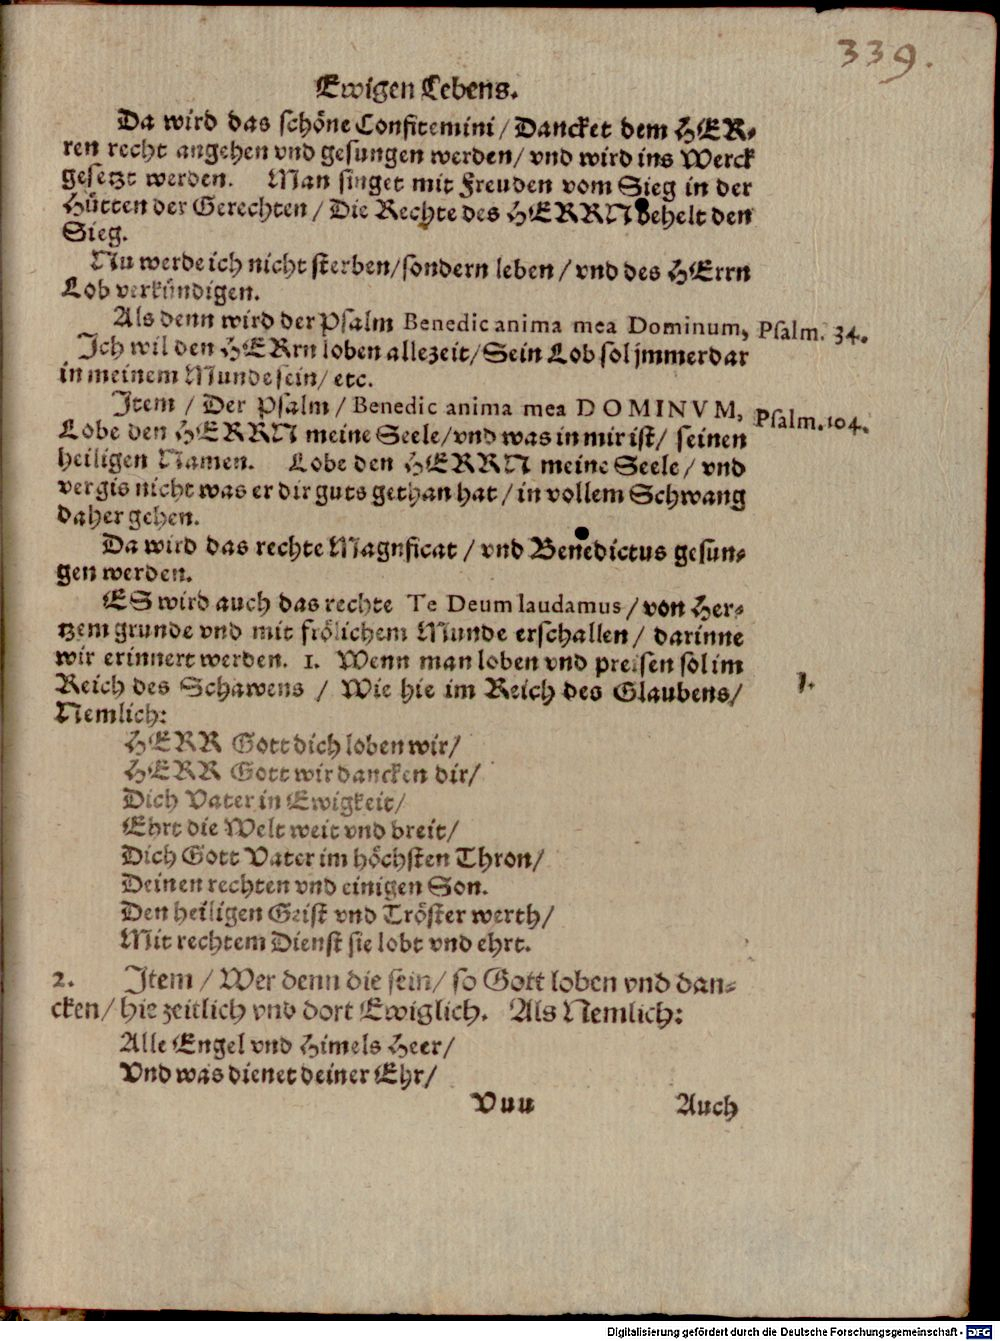 339.
Ewigen Lebens.
Da wird das schöne Confitemini / Dancket dem HER-
ren recht angehen vnd gesungen werden / vnd wird ins Werck
gesetzt werden. Man singet mit Freuden vom Sieg in der
Hütten der Gerechten / Die Rechte des HERRN behelt den
Sieg.
Nu werde ich nicht sterben / sondern leben / vnd des HErrn
Lob verkündigen.
Als denn wird der Psalm Benedic anima mea Dominum, Psalm. 34.
Ich wil den HERrn loben allezeit / Sein Lob sol jmmerdar
in meinem Munde sein / etc.
Item / Der Psalm / Benedic anima mea DOMINVM, Psalm. 104.
Lobe den HERRN meine Seele / vnd was in mir ist / seinen
heiligen Namen. Lobe den HERRN meine Seele / vnd
vergis nicht was er dir guts gethan hat / in vollem Schwang
daher gehen.
Da wird das rechte Magnificat / vnd Benedictus gesun-
gen werden.
ES wird auch das rechte Te Deum laudamus / von Her-
tzem grunde vnd mit frölichem Munde erschallen / darinne
wir erinnert werden. 1. Wenn man loben vnd preisen sol im
Reich des Schawens / Wie hie im Reich des Glaubens / 1.
Nemlich:
HERR Gott dich loben wir /
HERR Gott wir dancken dir /
Dich Vater in Ewigkeit /
Ehrt die Welt weit vnd breit /
Dich Gott Vater im höchsten Thron /
Deinen rechten vnd einigen Son.
Den heiligen Geist vnd Tröster werth /
Mit rechtem Dienst sie lobt vnd ehrt.
2. Item / Wer denn die sein / so Gott loben vnd dan-
cken / hie zeitlich vnd dort Ewiglich. Als Nemlich:
Alle Engel vnd Himels Heer /
Vnd was dienet deiner Ehr /
Vuu Auch
Digitalisierung gefördert durch die Deutsche Forschungsgemeinschaft - DFG